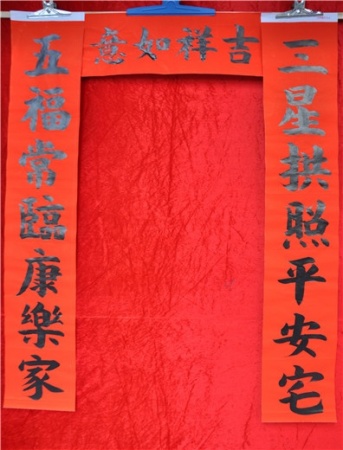 吉祥如意
三星拱照平安宅
五福常臨康樂家